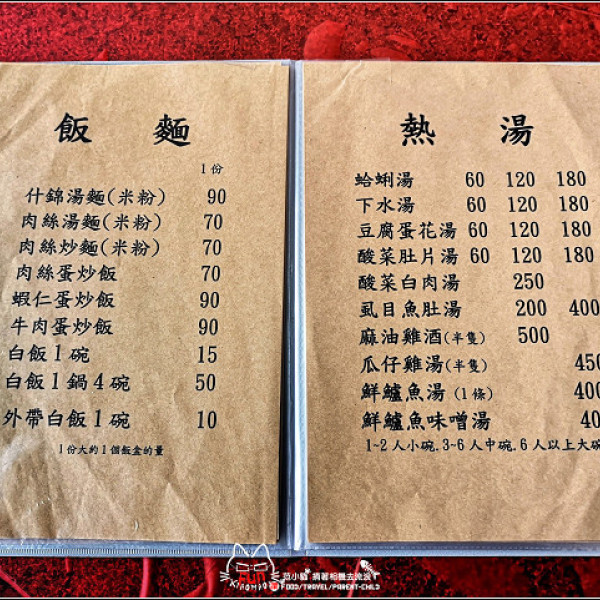 飯 麵
1份
什錦湯麵(米粉) 90
肉絲湯麵(米粉) 70
肉絲炒麵(米粉) 70
肉絲蛋炒飯 70
蝦仁蛋炒飯 90
牛肉蛋炒飯 90
白飯1碗 15
白飯1鍋4碗 50
外帶白飯1碗 10
1份大約1個飯盒的量
熱 湯
蛤蜊湯 60 120 180
下水湯 60 120 180
豆腐蛋花湯 60 120 180
酸菜肚片湯 60 120 180
酸菜白肉湯 250
虱目魚肚湯 200 400
麻油雞酒(半隻) 500
瓜仔雞湯(半隻) 450
鮮鱸魚湯 (1條) 400
鮮鱸魚味噌湯 40
1~2人小碗.3~6人中碗.6人以上大碗
FUN
范小貓 揹著相機去流浪
FOOD/TRAVEL/PARENT-CHILD